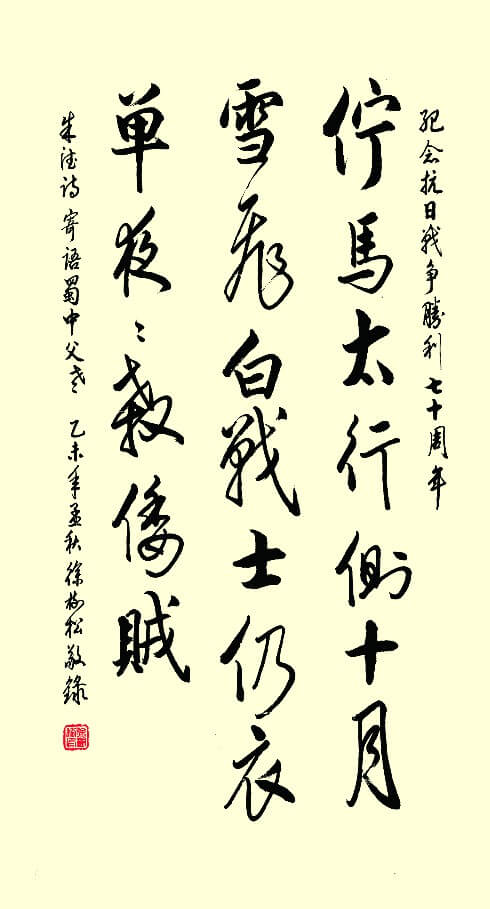 纪念抗日战争勝利七十周年
佇馬太行側十月
雪飛白戰士仍衣
单夜〻殺倭賊
朱德诗寄语蜀中父老 乙未年孟秋徐松敬錄